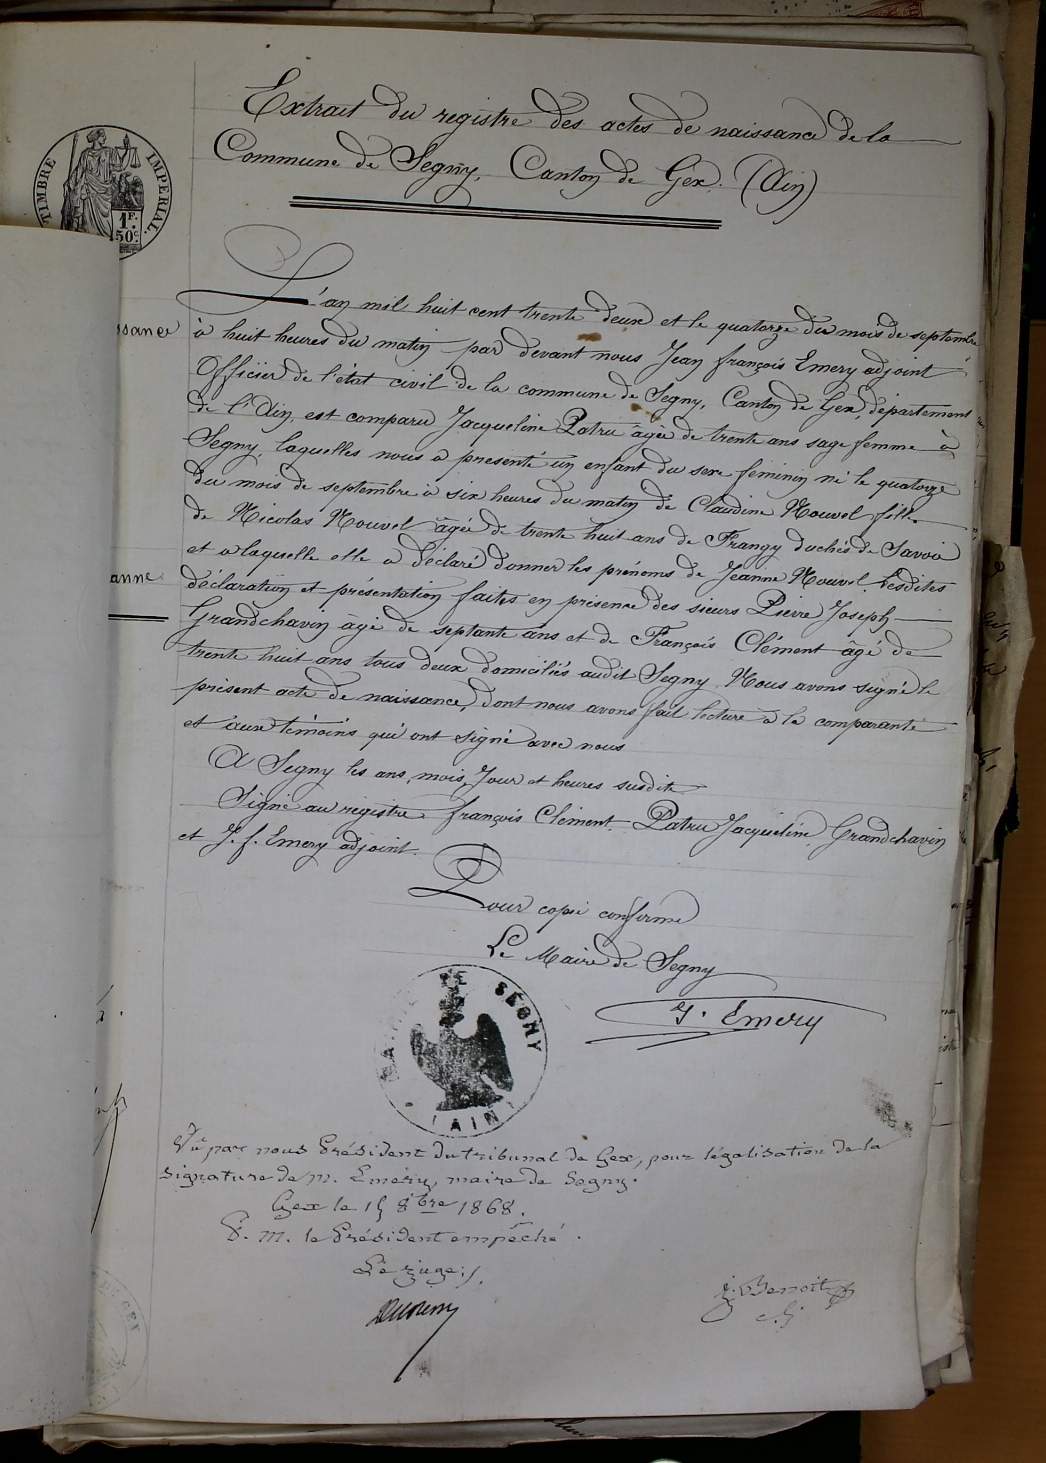 Extrait du registre des actes de naissance de la
Commune de Segny, Canton de Gex. (Ain)
TIMBRE IMPERIAL.
1F.
50c
L'an mil huit cent trente deux et le quatorze du mois de septembre
ssance
à huit heures du matin par devant nous Jean françois Emery adjoint
Officier de l'état civil de la commune de Segny, Canton de Gex, département
de l'Ain, est comparu Jacqueline Patru âgée de trente ans sage femme à
Segny, laquelles nous a présenté un enfant du sexe féminin né le quatorze
du mois de septembre à six heures du matin de Claudine Nouvel fille
de Nicolas Nouvel âgée de trente huit ans de Frangy duché de Savoie
et a laquelle elle a déclaré donner les prénoms de Jeanne Nouvel. Lesdites
anne
déclaration et présentation faites en présence des sieurs Pierre Joseph
Grandchavin âgé de septante ans et de François Clément âgé de
trente huit ans tous deux domiciliés audit Segny. Nous avons signé le
présent acte de naissance, dont nous avons fait lecture à la comparante
et aux témoins qui ont signé avec nous
A Segny les ans, mois, Jour et heures susdits
Signé au registre françois Clément. Patru Jacqueline, Grandchavin
et J. f. Emery adjoint.
Pour copie conforme
Le Maire de Segny
J. Emery
MAIRIE DE SEGNY
(AIN)
Vu par nous Président du tribunal de Gex, pour légalisation de la
signature de M. Emery, maire de Segny.
Gex le 15 8bre 1868.
P. M. le Président empêché.
Le juge:
J. Benoit